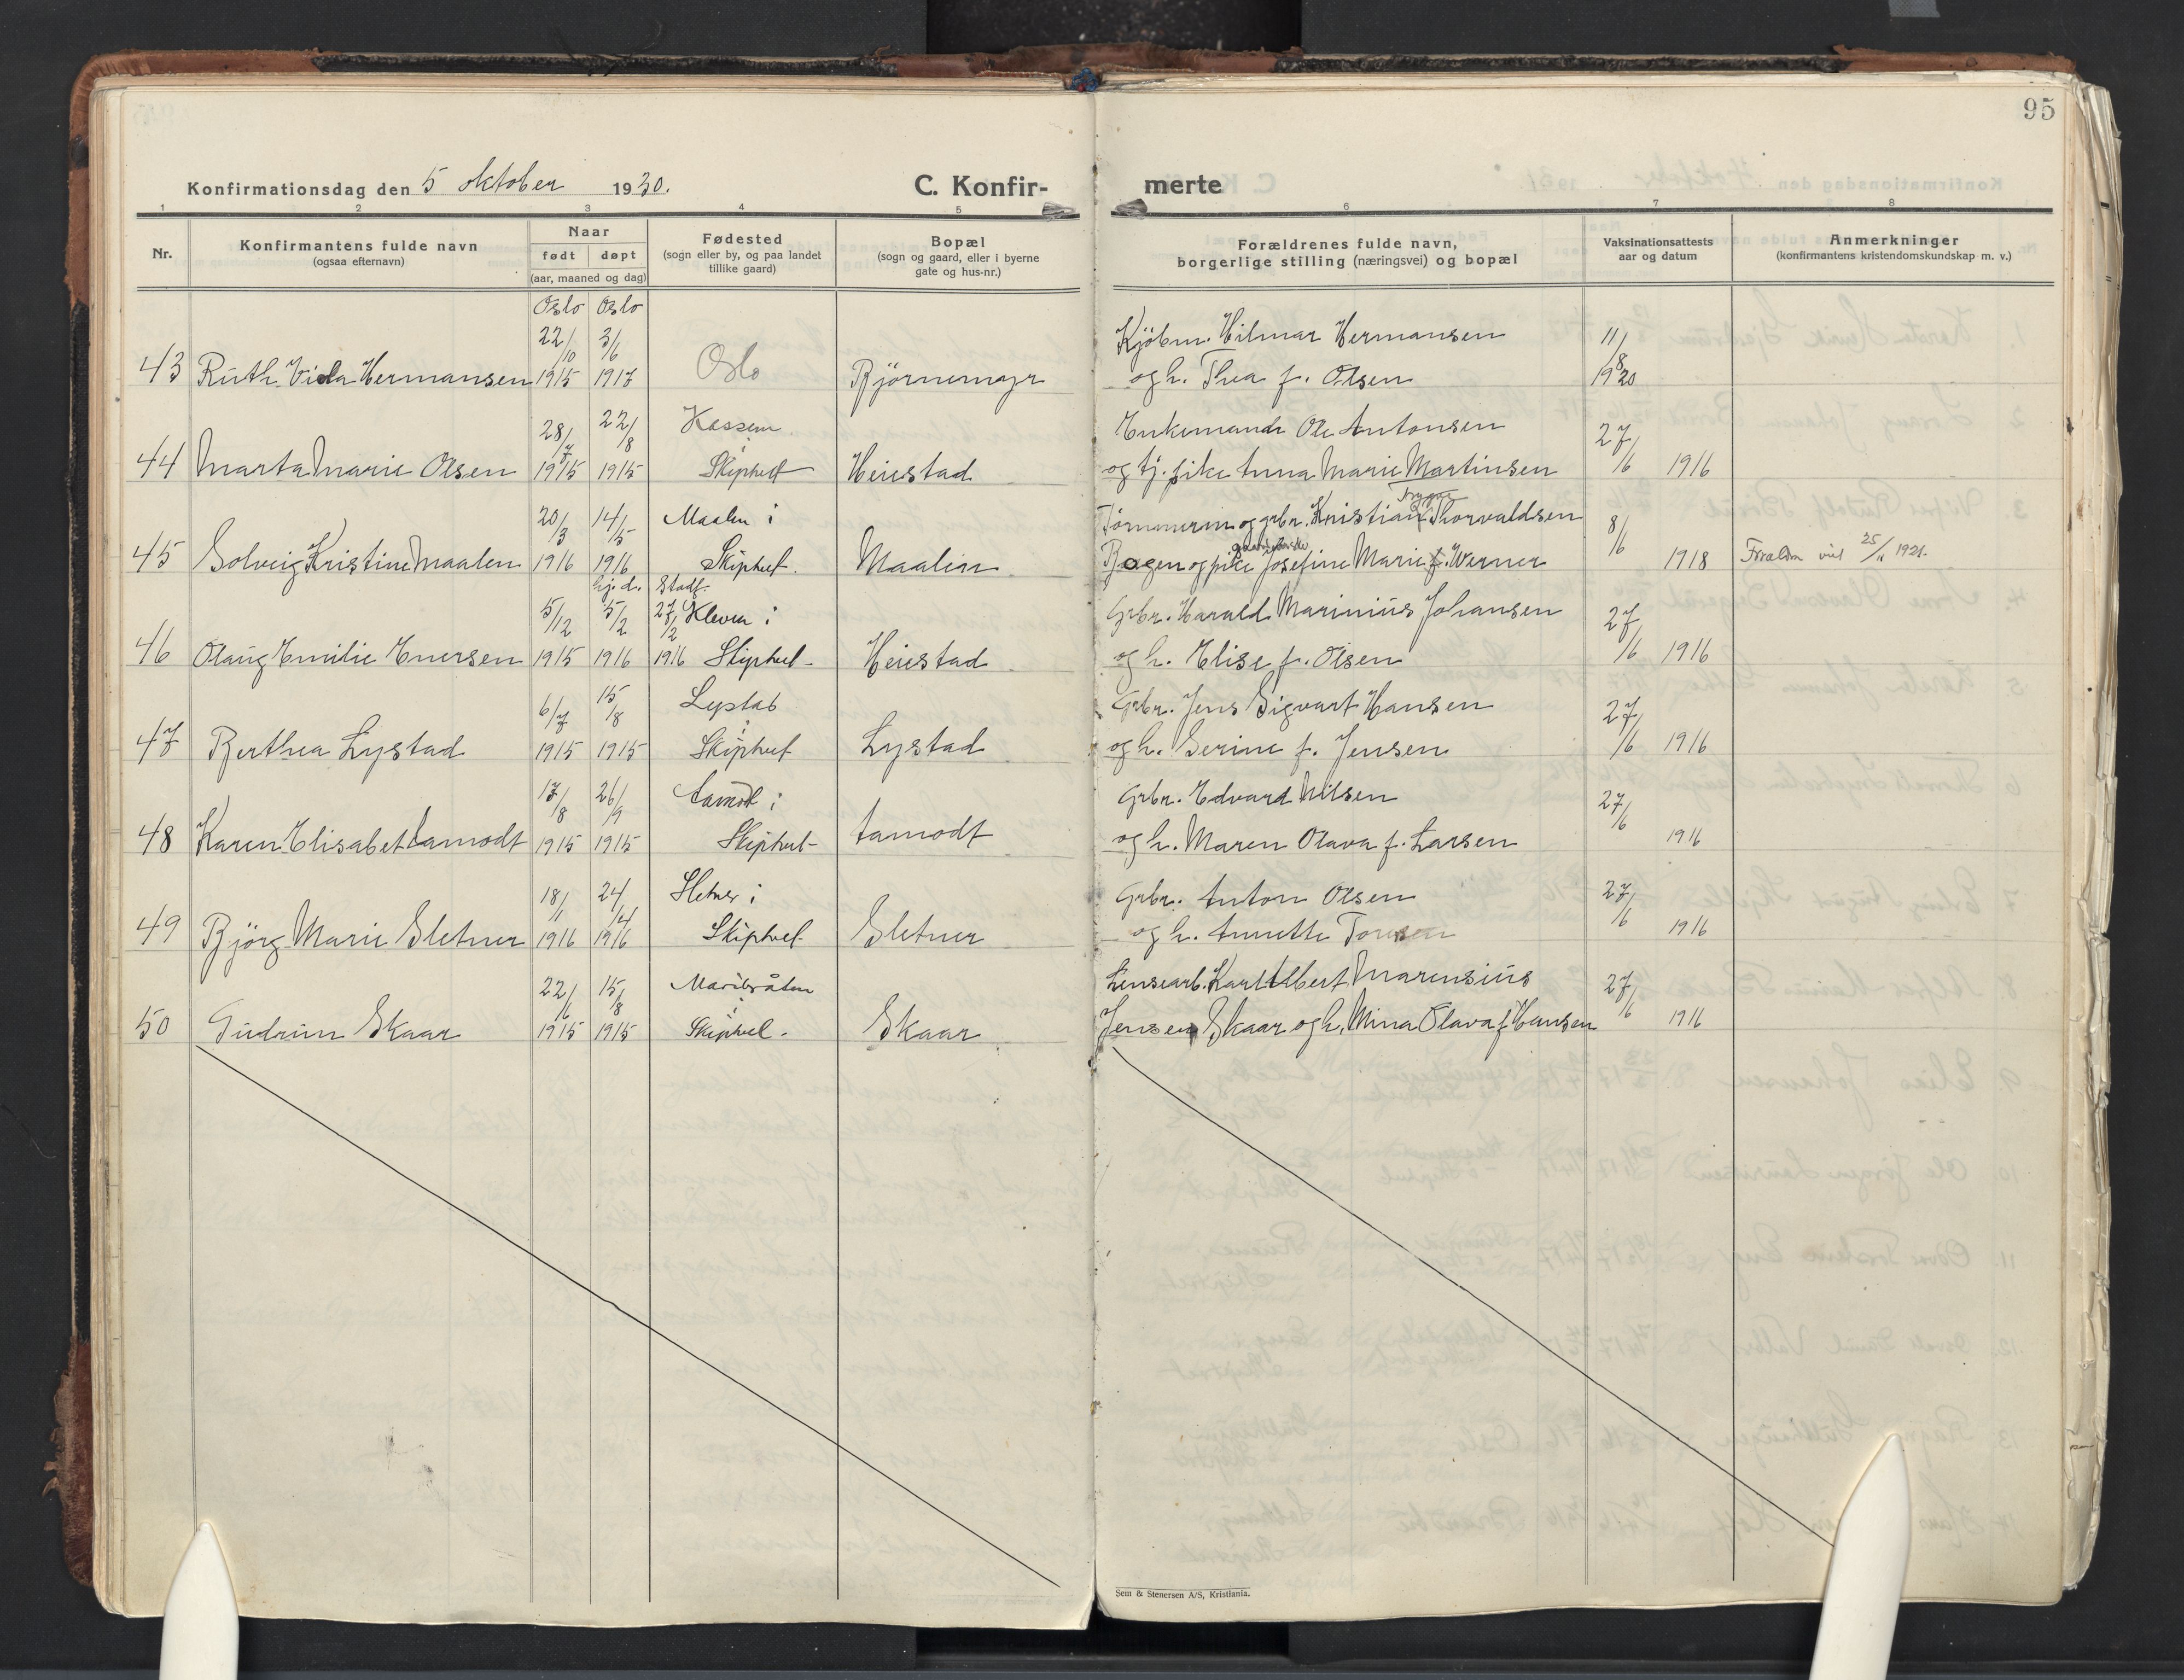 95
Konfirmationsdag den 5 oktober 1930.
C. Konfir-
merte
1 2 3 4 5 6 7 8
Nr.
Konfirmantens fulde navn
(ogsaa efternavn)
Naar
født døpt
(aar, maaned og dag)
Fødested
(sogn eller by, og paa landet
tillike gaard)
Bopæl
(sogn og gaard, eller i byerne
gate og hus-nr.)
Forældrenes fulde navn,
borgerlige stilling (næringsvei) og bopæl
Vaksinationsattests
aar og datum
Anmerkninger
(konfirmantens kristendomskundskap m. v.)
Oslo Oslo
22/10 3/6 Kjöbm. Hilmar Hermansen 11/8
43 Ruth Viola Hermansen 1915 1917 Oslo Björnemyr og h. Thea f. Olsen 1920
28/7 22/8 Kassem i Enkemand Ole Antonsen 27/6
44 Marta Marie Olsen 1915 1915 Skiptvet Heiestad og tj. pike Anna Marie Martinsen 1916
Trygve
20/3 14/5 Maalen i Tömmerm og grbr. Kristian Thorvaldsen 8/6
45 Solveig Kristine Maalen 1916 1916 Skiptvet. Maalen Bogen og pike Josefine Marie f. Werner 1918 Foreldre viet 25/11 1921.
hj. d. Stadf.
5/12 5/2 27/2 Kleven i Grbr. Harald Marinius Johansen 27/6
46 Olaug Emilie Enersen 1915 1916 1916 Skiptvet Heiestad og h. Elise f. Olsen 1916
6/7 15/8 Lystad i Grbr. Jens Sigvart Hansen 27/6
47 Berthea Lystad 1915 1915 Skiptvet Lystad og h. Serine f. Jensen 1916
17/8 26/9 Aamodt i Grbr. Edvard Nilsen 27/6
48 Karen Elisabet Aamodt 1915 1915 Skiptvet Aamodt og h. Maren Olava f. Larsen 1916
18/1 24/4 Sletner i Grbr. Anton Olsen 27/6
49 Björg Marie Sletner 1916 1916 Skiptvet Sletner og h. Annette Toresen 1916
22/6 15/8 i Lensearb. Karl Albert Marensius 27/6
50 Gudrun Skaar 1915 1915 Skiptvet. Skaar Jensen Skaar og h. Mina Olava f. Hansen 1916
Sem & Stenersen A/S, Kristiania.